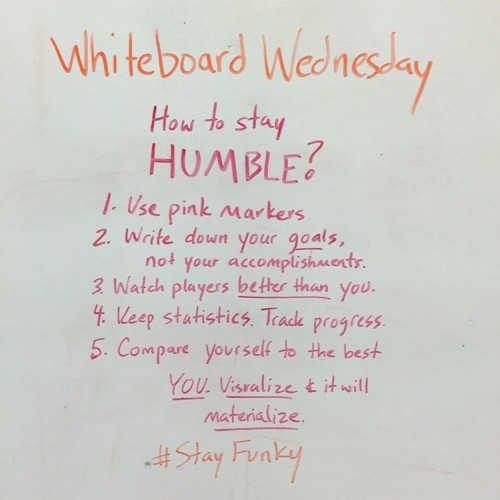 Whiteboard Wednesday
How to stay
HUMBLE?
1. Use pink markers
2. Write down your goals,
not your accomplishments.
3. Watch players better than you.
4. Keep statistics. Track progress.
5. Compare yourself to the best
YOU. Visralize & it will
materialize.
#Stay Funky